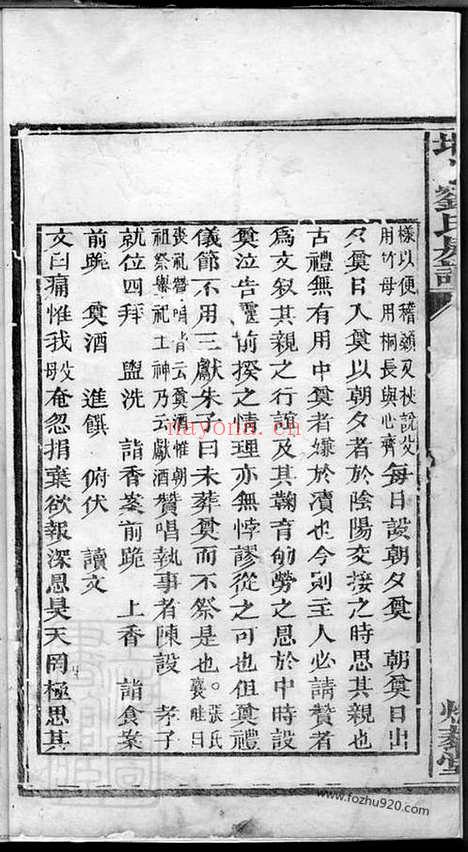 劉氏族譜
樣以便稽顙又杖說父
用竹母用桐長與心齊每日設朝夕奠　朝奠日出
夕奠日入奠以朝夕者於陰陽交接之時思其親也
古禮無有用中奠者嫌於瀆也今則主人必請贊者
為文敘其親之行誼及其鞠育劬勞之恩於中時設
奠泣告靈前揆之情理亦無悖謬從之可也但奠禮
儀節不用三獻朱子曰未葬奠而不祭是也。張氏
喪禮 皆云奠酒惟朝
祖祭舉祀土神乃云獻酒贊唱執事者陳設　孝子
就位四拜　盥洗　詣香案前跪　上香　詣食案
前跪　奠酒　進饌　俯伏　讀文
文曰痛惟我父母奄忽捐棄欲報深恩昊天罔極思其
nayona.cn
www.fozhu920.com